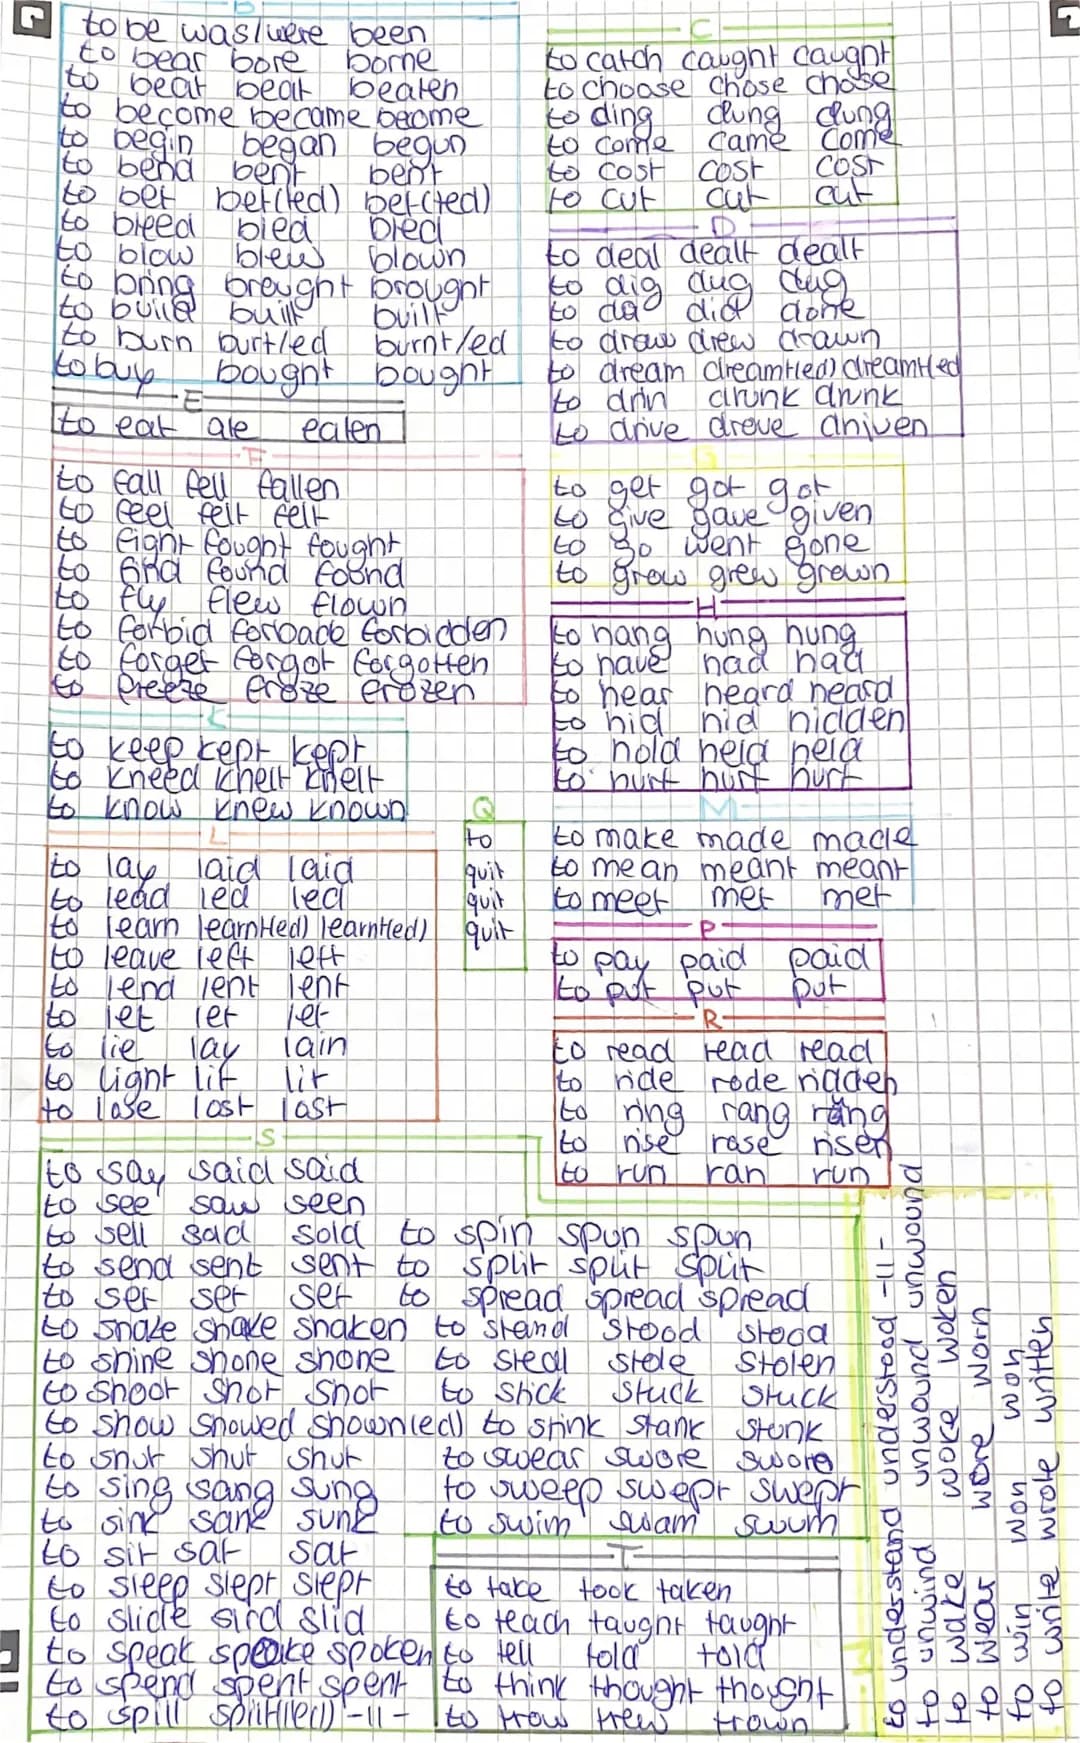 B
to be was/were been
to bear bore borne
to beat beat beaten
to become became become
to begin began begun
to bend bent bent
to bet bet(ted) bet(ted)
to bleed bled bled
to blow blew blown
to bring brought brought
to build built built
to burn burt/ed burnt/ed
to buy bought bought
C
to catch caught caught
to choose chose chose
to cling clung clung
to come came come
to cost cost cost
to cut cut cut
D
to deal dealt dealt
to dig dug dug
to do did done
to draw drew drawn
to dream dreamt(ed) dreamt(ed
to drin drunk drunk
to drive drove driven
E
to eat ate eaten
F
to fall fell fallen
to feel felt felt
to fight fought fought
to find found found
to fly flew flown
to forbid forbade forbidden
to forget forgot forgotten
to freeze froze frozen
G
to get got got
to give gave given
to go went gone
to grow grew grown
H
to hang hung hung
to have had had
to hear heard heard
to hid hid hidden
to hold held held
to hurt hurt hurt
K
to keep kept kept
to kneed knelt knelt
to know knew known
L
to lay laid laid
to lead led led
to learn learnt(ed) learnt(ed)
to leave left left
to lend lent lent
to let let let
to lie lay lain
to light lit lit
to lose lost lost
Q
to
quit
quit
quit
M
to make made made
to mean meant meant
to meet met met
P
to pay paid paid
to put put put
R
to read read read
to ride rode ridden
to ring rang rang
to rise rose risen
to run ran run
S
to say said said
to see saw seen
to sell sold sold
to send sent sent
to set set set
to shake shake shaken
to shine shone shone
to shoot shot shot
to show showed shown(ed)
to shut shut shut
to sing sang sung
to sink sank sunk
to sit sat sat
to sleep slept slept
to slide slid slid
to speak spoke spoken
to spend spent spent
to spill spilt(led) -||-
to spin spun spun
to split split split
to spread spread spread
to stand stood stood
to steal stole stolen
to stick stuck stuck
to stink stank stunk
to swear swore swore
to sweep swept swept
to swim swam swum
T
to take took taken
to teach taught taught
to tell told told
to think thought thought
to trow trew trown
to undestand understood -||-
to unwind unwound unwound
to wake woke woken
to wear wore worn
to win won won
to write wrote written